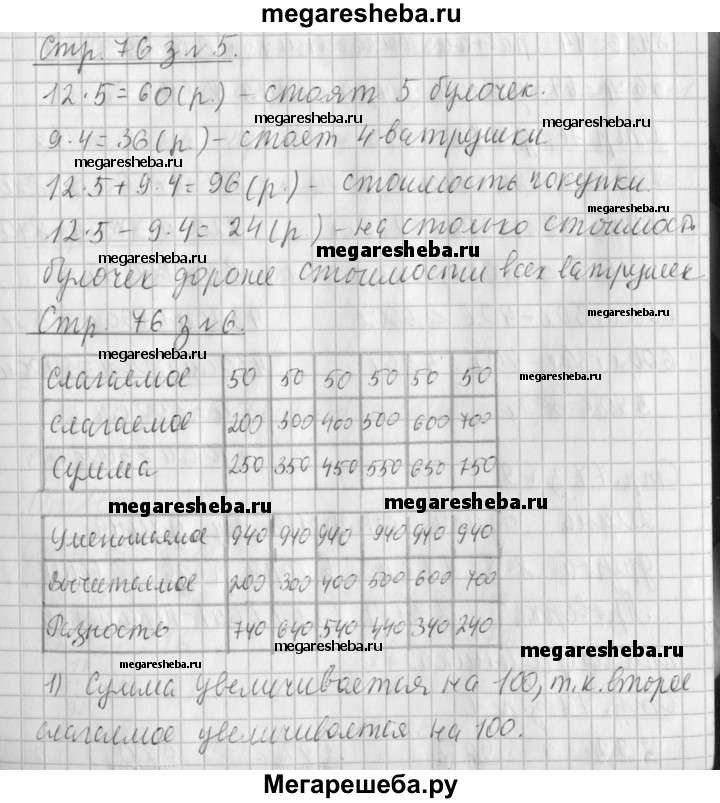 megaresheba.ru
Стр. 76 з №5.
megaresheba.ru
12·5=60(р.) - стоят 5 булочек.
9·4=36(р.) - стоят 4 ватрушки
megaresheba.ru
12·5+9·4=96(р.) - стоимость покупки.
megaresheba.ru
12·5-9·4=24(р.) - на столько стоимость
megaresheba.ru
megaresheba.ru
булочек дороже стоимости всех ватрушек
Стр. 76 з №6.
megaresheba.ru
megaresheba.ru
Слагаемое 50 50 50 50 50 50
megaresheba.ru
Слагаемое 200 300 400 500 600 700
Сумма 250 350 450 550 650 750
megaresheba.ru
megaresheba.ru
Уменьшаемое 940 940 940 940 940 940
Вычитаемое 200 300 400 500 600 700
Разность 740 640 540 440 340 240
megaresheba.ru
megaresheba.ru
megaresheba.ru
1) Сумма увеличивается на 100, т.к. второе
слагаемое увеличивается на 100.
Мегарешеба.ру